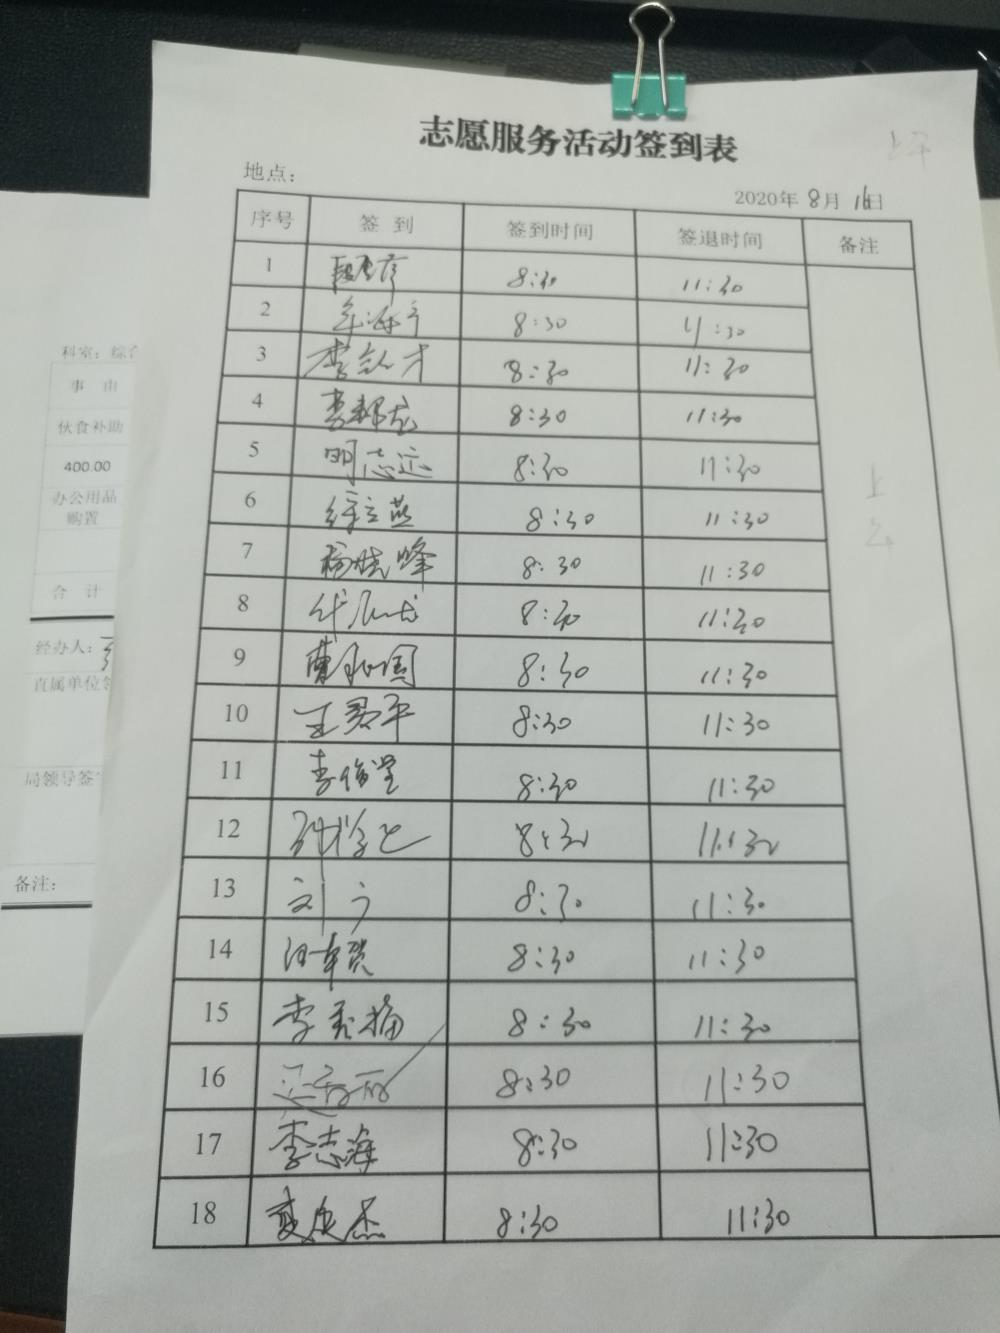 志愿服务活动签到表
上午
地点：
2020年 8月 16日
序号 签 到 签到时间 签退时间 备注
1 8:30 11:30
2 8:30 11:30
3 8:30 11:30
4 8:30 11:30
5 明志远 8:30 11:30
6 徐立燕 8:30 11:30
7 杨晓峰 8:30 11:30
8 8:30 11:30
9 8:30 11:30
10 王君平 8:30 11:30
11 李俊堂 8:30 11:30
12 8:30 11:30
13 刘 8:30 11:30
14 8:30 11:30
15 李 8:30 11:30
16 8:30 11:30
17 李志海 8:30 11:30
18 8:30 11:30
上
午
科室：综合
事 由
伙食补助
400.00
办公用品
购置
合 计
经办人：
直属单位领
局领导签字
备注：